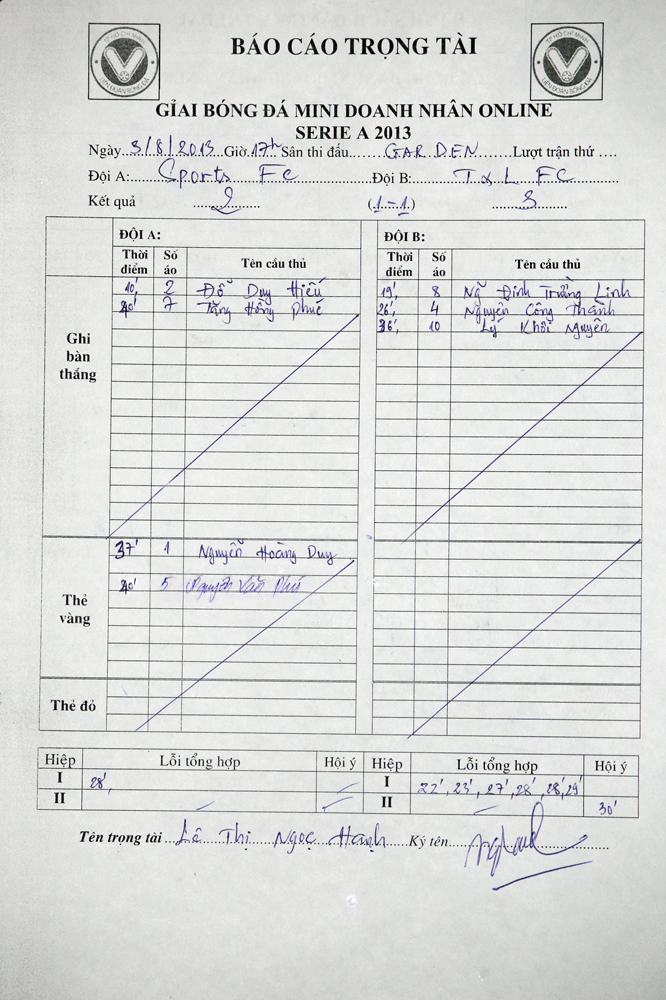 TP HỒ CHÍ MINH
LIÊN ĐOÀN BÓNG ĐÁ
BÁO CÁO TRỌNG TÀI
TP HỒ CHÍ MINH
LIÊN ĐOÀN BÓNG ĐÁ
GIẢI BÓNG ĐÁ MINI DOANH NHÂN ONLINE
SERIE A 2013
Ngày 3/8/2013 Giờ 17h Sân thi đấu GARDEN Lượt trận thứ ....
Đội A: Sports Fc Đội B: T&L FC
Kết quả 2 (1-1) 3
ĐỘI A: ĐỘI B:
Thời điểm Số áo Tên cầu thủ Thời điểm Số áo Tên cầu thủ
Ghi bàn thắng
10' 2 Đỗ Duy Hiếu 19' 8 Ng Đình Trường Linh
40' 7 Tăng Hồng Phúc 26' 4 Nguyễn Công Thành
36' 10 Lý Khôi Nguyên
Thẻ vàng
37' 1 Nguyễn Hoàng Duy
40' 5 Nguyễn Văn Phú
Thẻ đỏ
Hiệp Lỗi tổng hợp Hội ý Hiệp Lỗi tổng hợp Hội ý
I 28', I 22', 23', 27', 28', 28', 29'
II II 30'
Tên trọng tài Lê Thị Ngọc Hạnh Ký tên